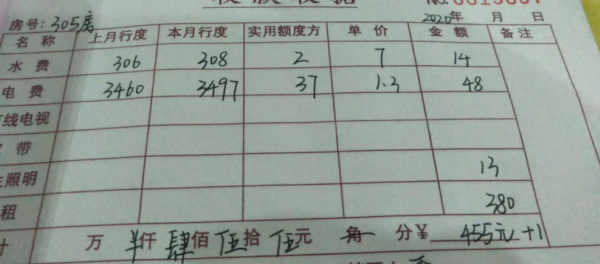 收款收据 No.
房号：305房 2020年 月 日
名称 上月行度 本月行度 实用额度方 单价 金额 备注
水费 306 308 2 7 14
电费 3460 3497 37 1.3 48
线电视
带
照明 13
租 380
计 万 仟 肆佰 伍拾 伍元 角 分 ¥ 455元+1